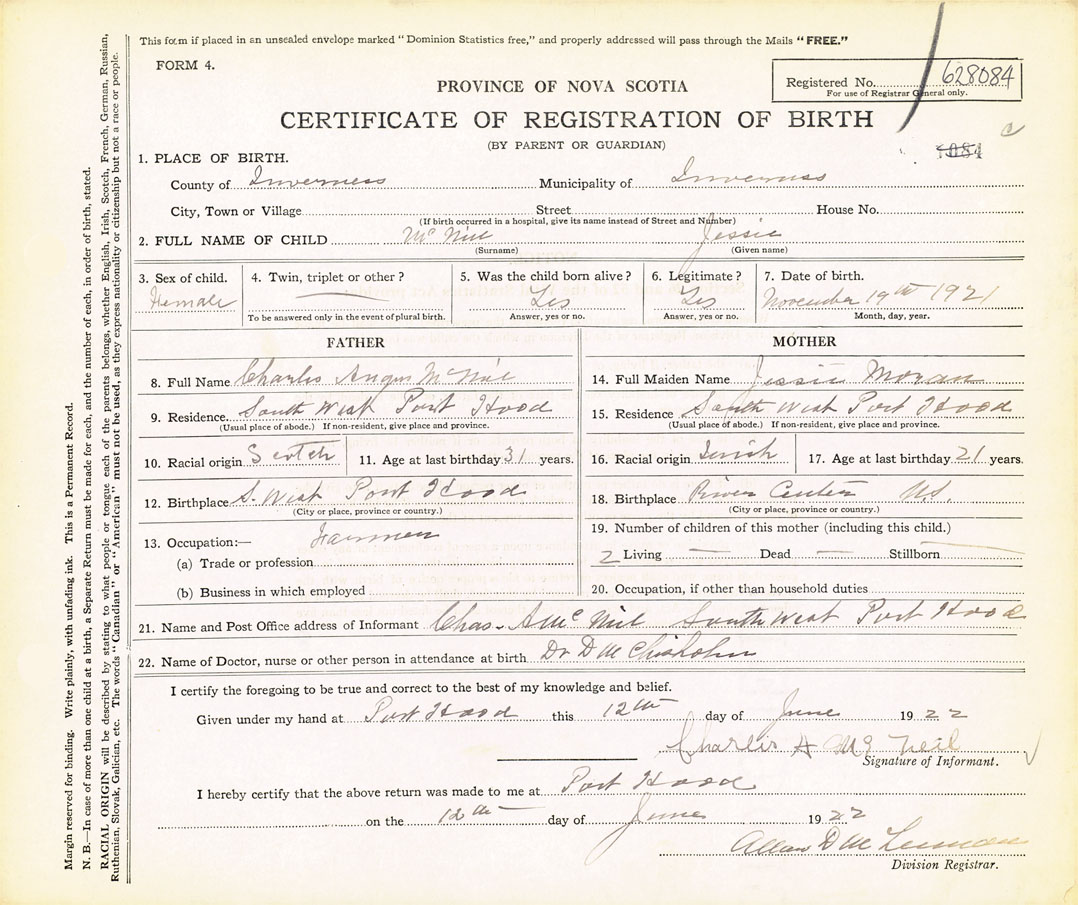 This form if placed in an unsealed envelope marked "Dominion Statistics free," and properly addressed will pass through the Mails "FREE."
FORM 4.
Registered No. 628084
For use of Registrar General only.
PROVINCE OF NOVA SCOTIA
CERTIFICATE OF REGISTRATION OF BIRTH
(BY PARENT OR GUARDIAN)
1. PLACE OF BIRTH.
County of Inverness Municipality of Inverness
City, Town or Village Street House No.
(If birth occurred in a hospital, give its name instead of Street and Number)
2. FULL NAME OF CHILD Mc Niel Jessie
(Surname) (Given name)
3. Sex of child. Female
4. Twin, triplet or other?
To be answered only in the event of plural birth.
5. Was the child born alive? Yes
Answer, yes or no.
6. Legitimate? Yes
Answer, yes or no.
7. Date of birth.
November 19th 1921
Month, day, year.
FATHER
8. Full Name Charles Angus McNiel
9. Residence South West Port Hood
(Usual place of abode.) If non-resident, give place and province.
10. Racial origin Scotch 11. Age at last birthday 31 years.
12. Birthplace S. West Port Hood
(City or place, province or country.)
13. Occupation:— Farmer
(a) Trade or profession
(b) Business in which employed
MOTHER
14. Full Maiden Name Jessie Moran
15. Residence South West Port Hood
(Usual place of abode.) If non-resident, give place and province.
16. Racial origin Irish 17. Age at last birthday 21 years.
18. Birthplace River Center U.S.
(City or place, province or country.)
19. Number of children of this mother (including this child.)
2 Living Dead Stillborn
20. Occupation, if other than household duties
21. Name and Post Office address of Informant Chas. A Mc Niel South West Port Hood
22. Name of Doctor, nurse or other person in attendance at birth Dr D M Chisholm
I certify the foregoing to be true and correct to the best of my knowledge and belief.
Given under my hand at Port Hood this 12th day of June 1922
Charlis A Mc Neil
Signature of Informant.
I hereby certify that the above return was made to me at Port Hood
on the 12th day of June 1922
Allan D
Division Registrar.
Margin reserved for binding. Write plainly, with unfading ink. This is a Permanent Record.
N. B.—In case of more than one child at a birth, a Separate Return must be made for each, and the number of each, in order of birth, stated.
RACIAL ORIGIN will be described by stating to what people or tongue each of the parents belongs, whether English, Irish, Scotch, French, German, Russian,
Ruthenian, Slovak, Galician, etc. The words "Canadian" or "American" must not be used, as they express nationality or citizenship but not a race or people.